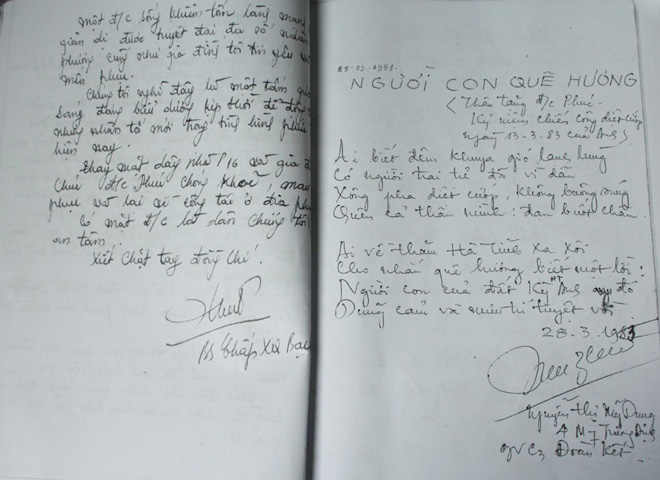 một đ/c sống khiêm tốn lặng
giản dị được tuyệt đại đa số nhân
phường cũng như gia đình tôi tin yêu
mến phục.
Chúng tôi nghĩ đây là một tấm
sáng đáng biểu dương kịp thời để động
những nhân tố mới trong tình hình
hiện nay.
Thay mặt dãy nhà P16 và gia
chúc đ/c Phúc chóng khoẻ,
phục và lại về công tác ở địa
Có mặt đ/c là dân chúng tôi
an tâm.
Xiết chặt tay đồng chí.
BS
28.03.1983.
NGƯỜI CON QUÊ HƯƠNG
< Thân tặng đ/c Phúc.
Kỷ niệm chiến công diệt cướp
ngày 13-3-83 của Anh >
Ai biết đêm khuya gió lạnh lùng
Có người trai trẻ đã vì dân
Xông pha diệt cướp, không
Quên cả thân mình: đạn buốt chân.
Ai về thăm Hà Tĩnh xa xôi
Cho nhắn quê hương biết một lời:
Người con của đất Kỳ Anh đó
Dũng cảm và mưu trí tuyệt vời
28.3.1983
Nguyễn Thị Mỹ Dung
4 Trương Định
GV C3 Đoàn Kết